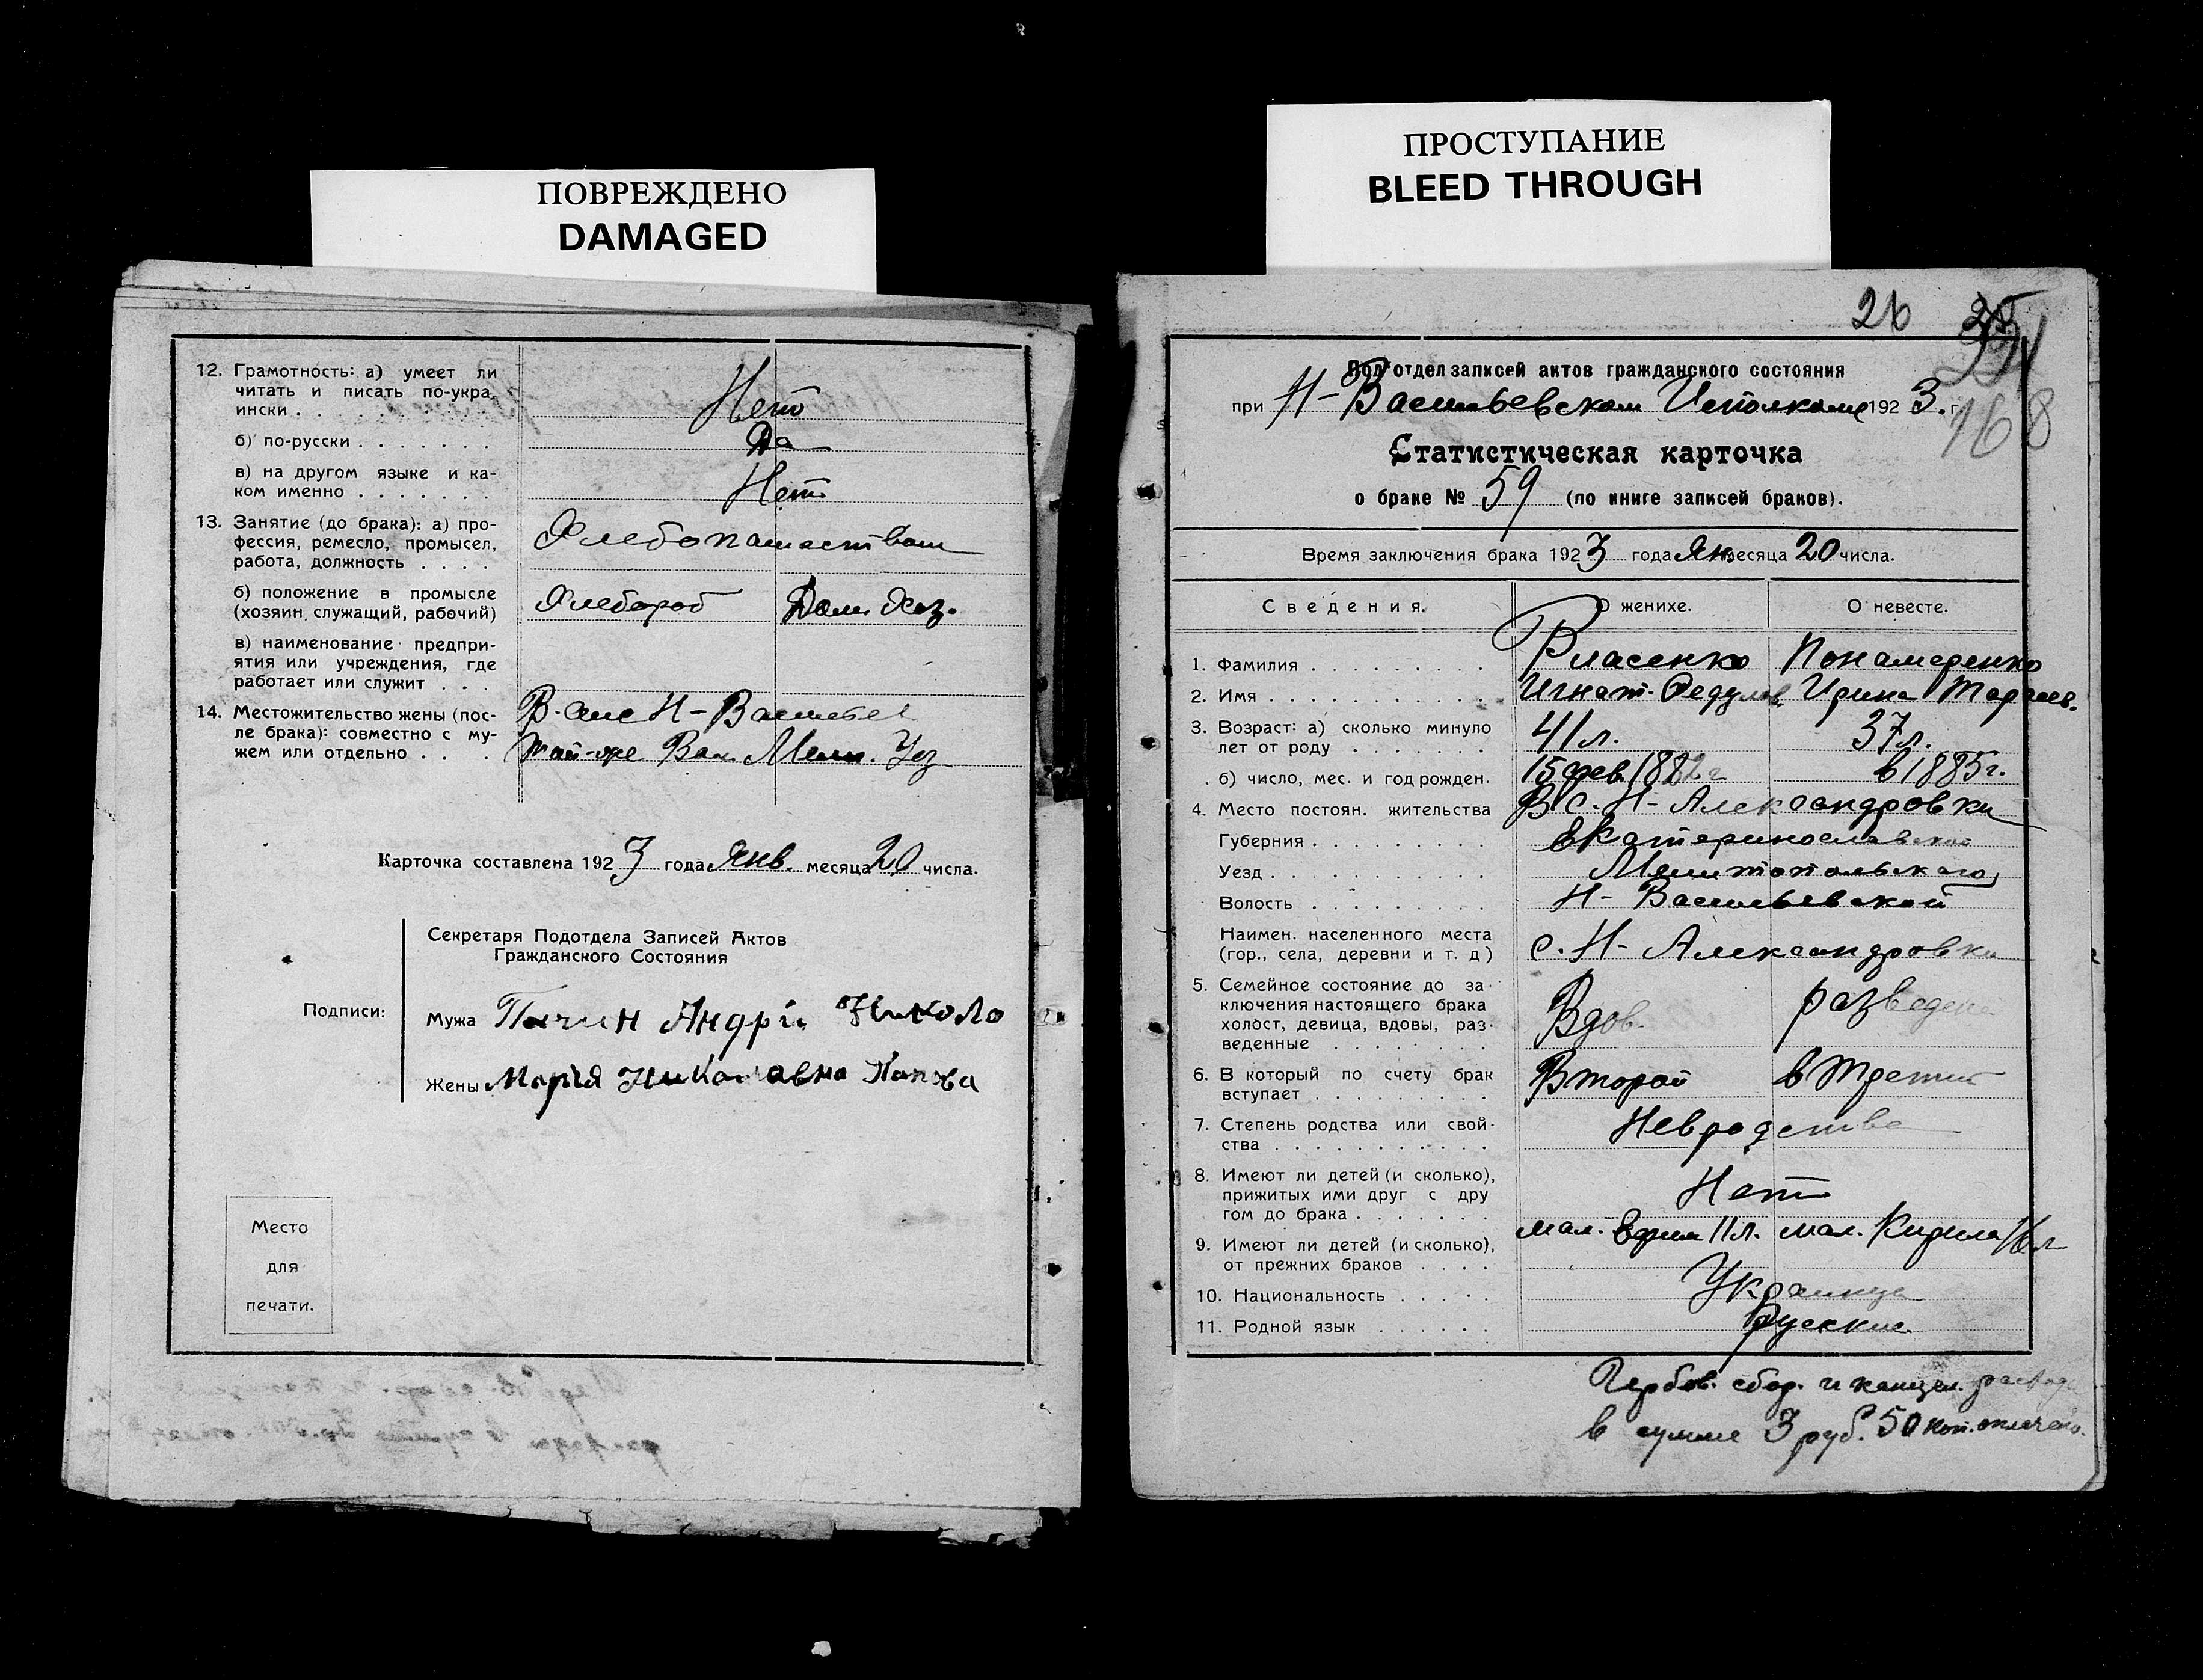 ПОВРЕЖДЕНО
DAMAGED
12. Грамотность: а) умеет ли
читать и писать по-укра-
ински . . . . . . Нет
б) по-русски . . . . . . . Да
в) на другом языке и ка-
ком именно . . . . . . . Нет
13. Занятие (до брака): а) про-
фессия, ремесло, промысел,
работа, должность . . . . Хлебопашеством
б) положение в промысле
(хозяин, служащий, рабочий) Хлебороб Дом. Хоз.
в) наименование предпри-
ятия или учреждения, где
работает или служит . . .
14. Местожительство жены (пос-
ле брака): совместно с му-
жем или отдельно . . . . В. селе Н-Василье
той-же Вол. Мелит. Уез
Карточка составлена 1923 года Янв. месяца 20 числа.
Секретаря Подотдела Записей Актов
Гражданского Состояния
Подписи:
Мужа Андрій Николо
Жены Марія Николавна
Место
для
печати.
ПРОСТУПАНИЕ
BLEED THROUGH
26
168
Под'отдел записей актов гражданского состояния
при Н-Васильевском Исполкоме 1923. г.
Статистическая карточка
о браке № 59 (по книге записей браков).
Время заключения брака 1923 года Ян. месяца 20 числа.
Сведения. О женихе. О невесте.
1. Фамилия . . . . . . . . . Власенко Понамаренко
2. Имя . . . . . . . . . . . Игнат. Федулов. Ирина Тараев.
3. Возраст: а) сколько минуло
лет от роду . . . . . . . 41 л. 37 л.
б) число, мес. и год рожден. 15 фев. 1882 г в 1885 г.
4. Место постоян. жительства В с. Н-Александровки
Губерния . . . . . . . . . Екатеринославской
Уезд . . . . . . . . . . . Мелитопольского
Волость . . . . . . . . . Н-Васильевской
Наимен. населенного места
(гор., села, деревни и т. д) с. Н-Александровки
5. Семейное состояние до за-
ключения настоящего брака
холост, девица, вдовы, раз-
веденные . . . . . . . . Вдов. разведена
6. В который по счету брак
вступает . . . . . . . . . Второй в третий
7. Степень родства или свой-
ства . . . . . . . . . . . Невродстве
8. Имеют ли детей (и сколько),
прижитых ими друг с дру
гом до брака . . . . . . . Нет
9. Имеют ли детей (и сколько),
от прежних браков . . . . мал. 11 л. мал. Кирила 16 л
10. Национальность . . . . . Украинцы
11. Родной язык . . . . . . Русский
Гербов. сбор. и канцел. расход
в сумме 3 руб. 50 коп. оплачено.